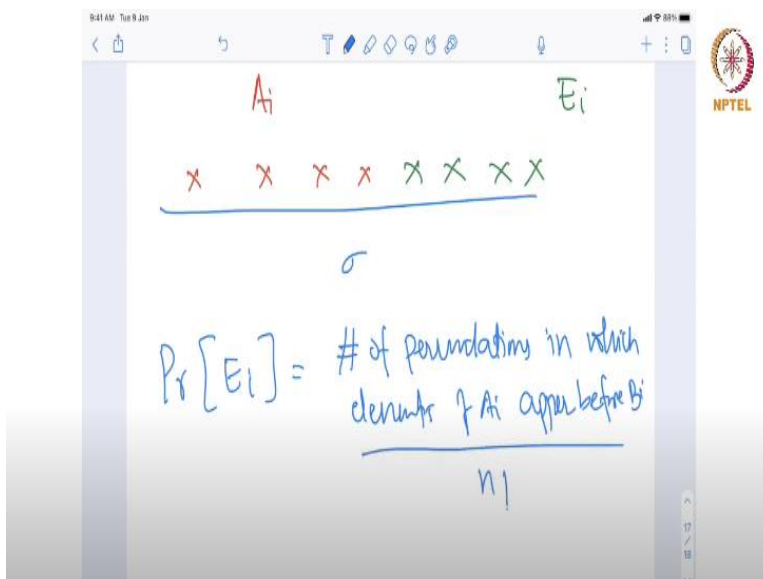 9:41 AM Tue 9 Jan
88%
T
NPTEL
Ai Ei
x x x x x x x x
σ
Pr[Ei] = # of permutations in which
elements of Ai appear before Bi
n!
17
/
18